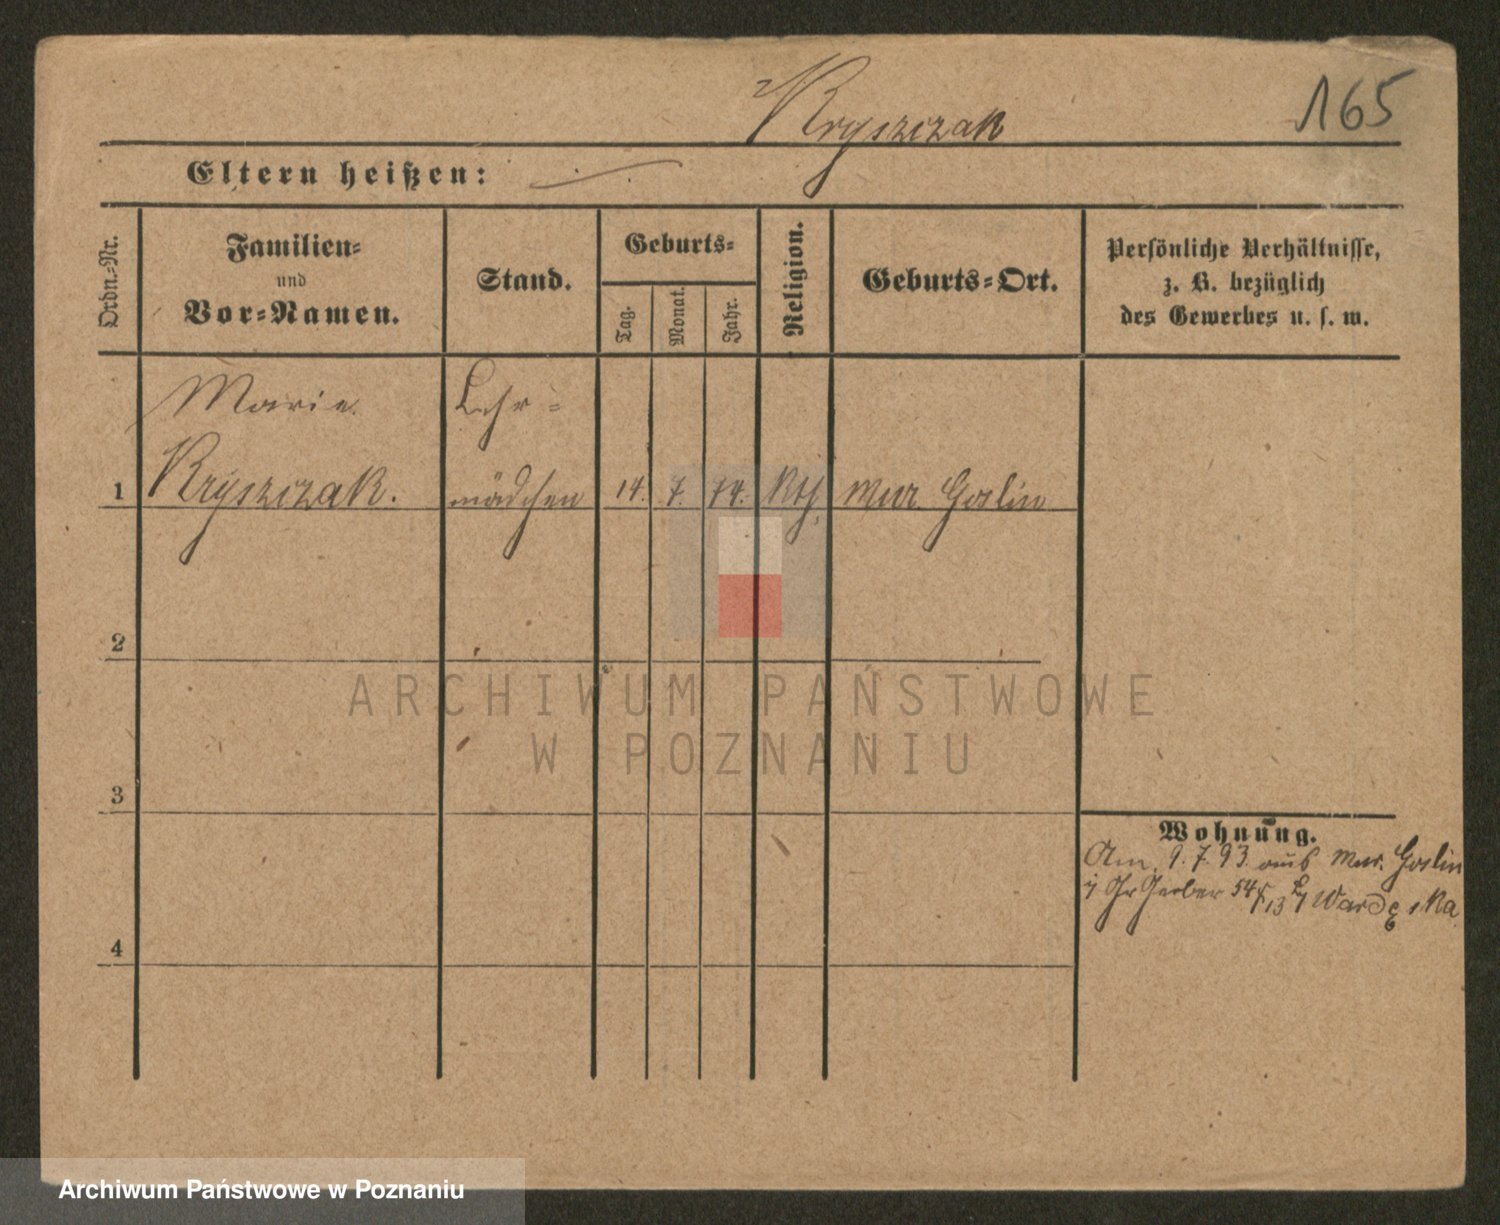 Kryszczak
165
Eltern heißen:
Ordn.-Nr.
Familien-
und
Vor-Namen.
Stand.
Geburts-
Tag.
Monat.
Jahr.
Religion.
Geburts-Ort.
Persönliche Verhältnisse,
z. B. bezüglich
des Gewerbes u. s. w.
Marie
Kryszczak.
Lehr-
mädchen
1
14. 7. 74. Kth. Mur. Goslin
2
3
4
ARCHIWUM PAŃSTWOWE
W POZNANIU
Wohnung.
Am 9. 7. 93 aus Mur. Goslin
Gr Gerber 54
Archiwum Państwowe w Poznaniu